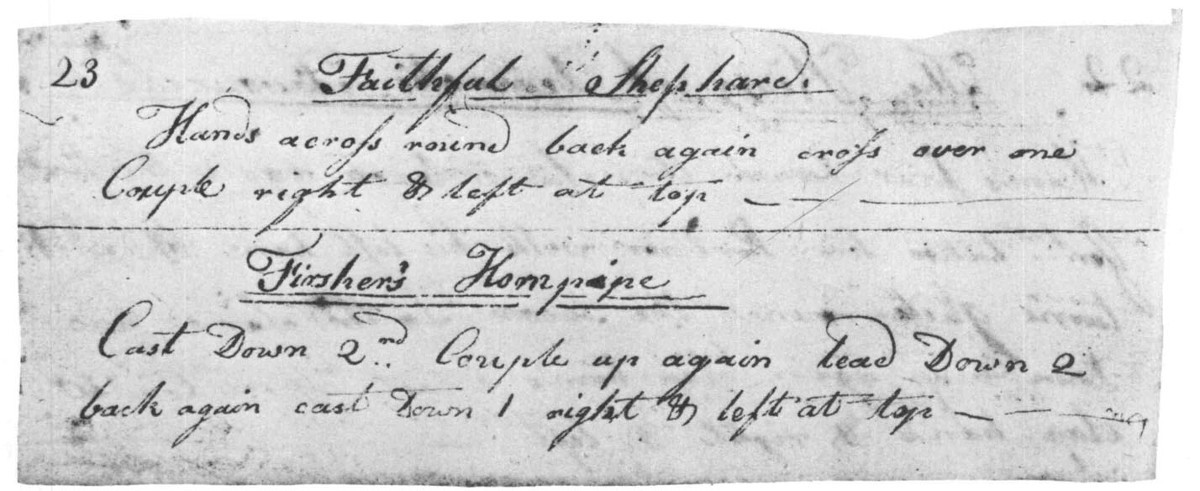 23 Faithful Shephard.
Hands across round back again cross over one
Couple right & left at top
Firsher's Hornpipe
Cast Down 2nd Couple up again lead Down 2
back again cast Down 1 right & left at top